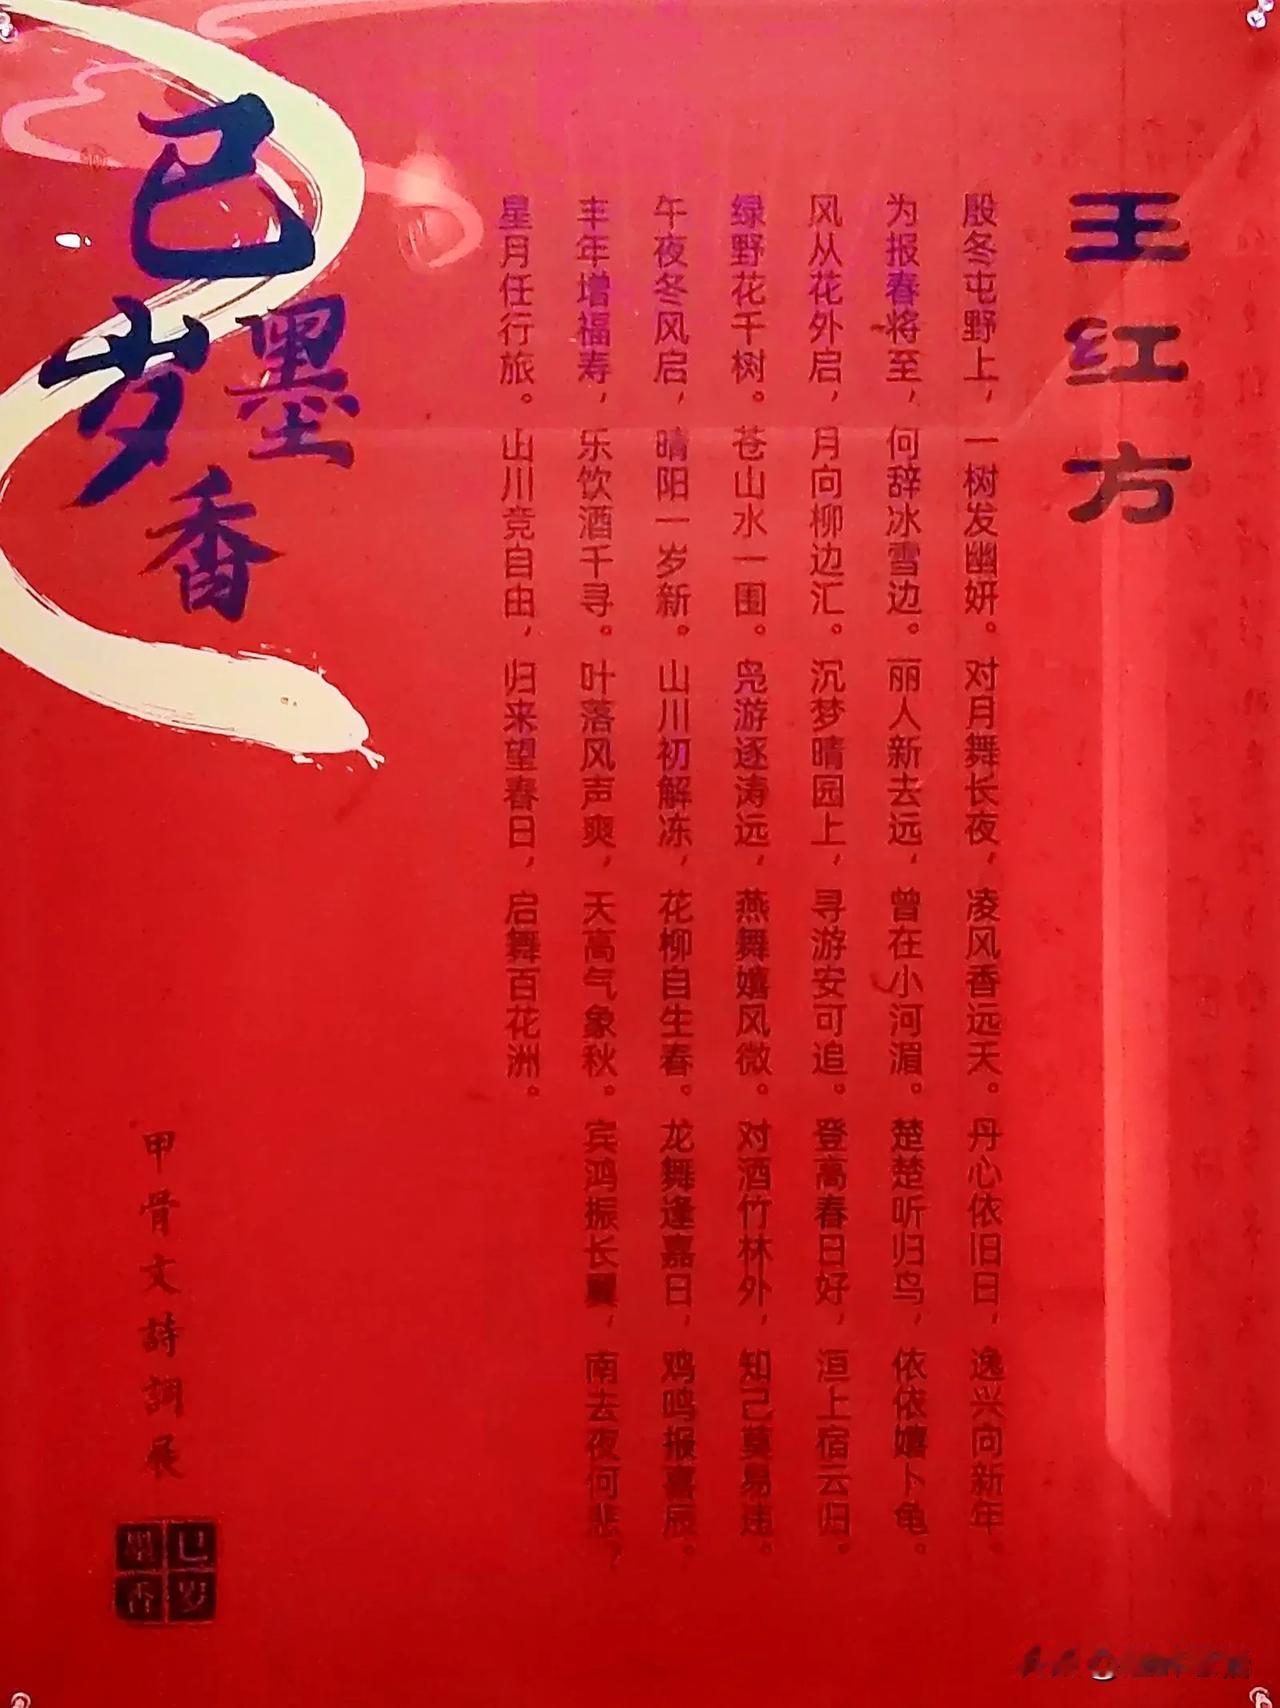 王红方
殷冬屯野上，一树发幽妍。对月舞长夜，凌风香远天。丹心依旧日，逸兴向新年。
为报春将至，何辞冰雪边。丽人新去远，曾在小河湄。楚楚听归鸟，依依嬉卜龟。
风从花外启，月向柳边汇。沉梦晴园上，寻游安可追。登高春日好，洹上宿云归。
绿野花千树。苍山水一围。凫游逐涛远，燕舞嬉风微。对酒竹林外，知己莫易违。
午夜冬风启，晴阳一岁新。山川初解冻，花柳自生春。龙舞逢嘉日，鸡鸣报喜辰。
丰年增福寿，乐饮酒千寻。叶落风声爽，天高气象秋。宾鸿振长翼，南去夜何悲？
星月任行旅。山川竞自由，归来望春日，启舞百花洲。
巳岁墨香
甲骨文詩詞展
巳岁墨香